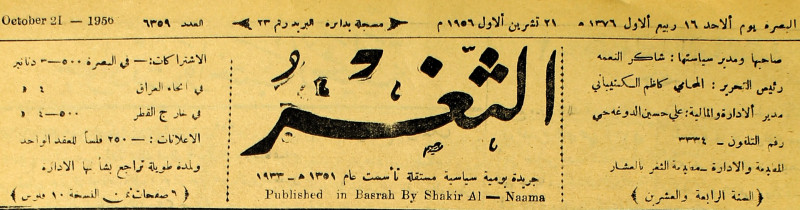 البصرة يوم الاحد ١٦ ربيع الاول ١٣٧٦ ه ٢١ تشرين الاول ١٩٥٦ م مسجلة بدائرة البريد رقم ٢٣ العدد ٦٣٥٩ October 21 — 1956
صاحبها ومدير سياستها : شاكر النعمه
رئيس التحرير : المحامي كاظم الكشيباني
مدير الادارة والمالية : علي حسين الدوغه جي
رقم التلفون — ٣٣٣٤
والادارة — الثغر بالعشار
﴿ السنة الرابعة والعشرين ﴾
الثغر
جريدة يومية سياسية مستقلة تأسست عام ١٣٥١ ه — ١٩٣٣
Published in Basrah By Shakir Al — Naama
الاشتراكات : — في البصرة ٥٠٠—٣ دنانير
في انحاء العراق ٤ د
في خارج القطر ٥٠٠—٤ د
الاعلانات : — ٢٥٠ فلساً للعقد الواحد
ولمدة طويلة تراجع بشأنها الادارة
﴿ ٦ صفحات ثمن النسخة ١٠ فلوس ﴾